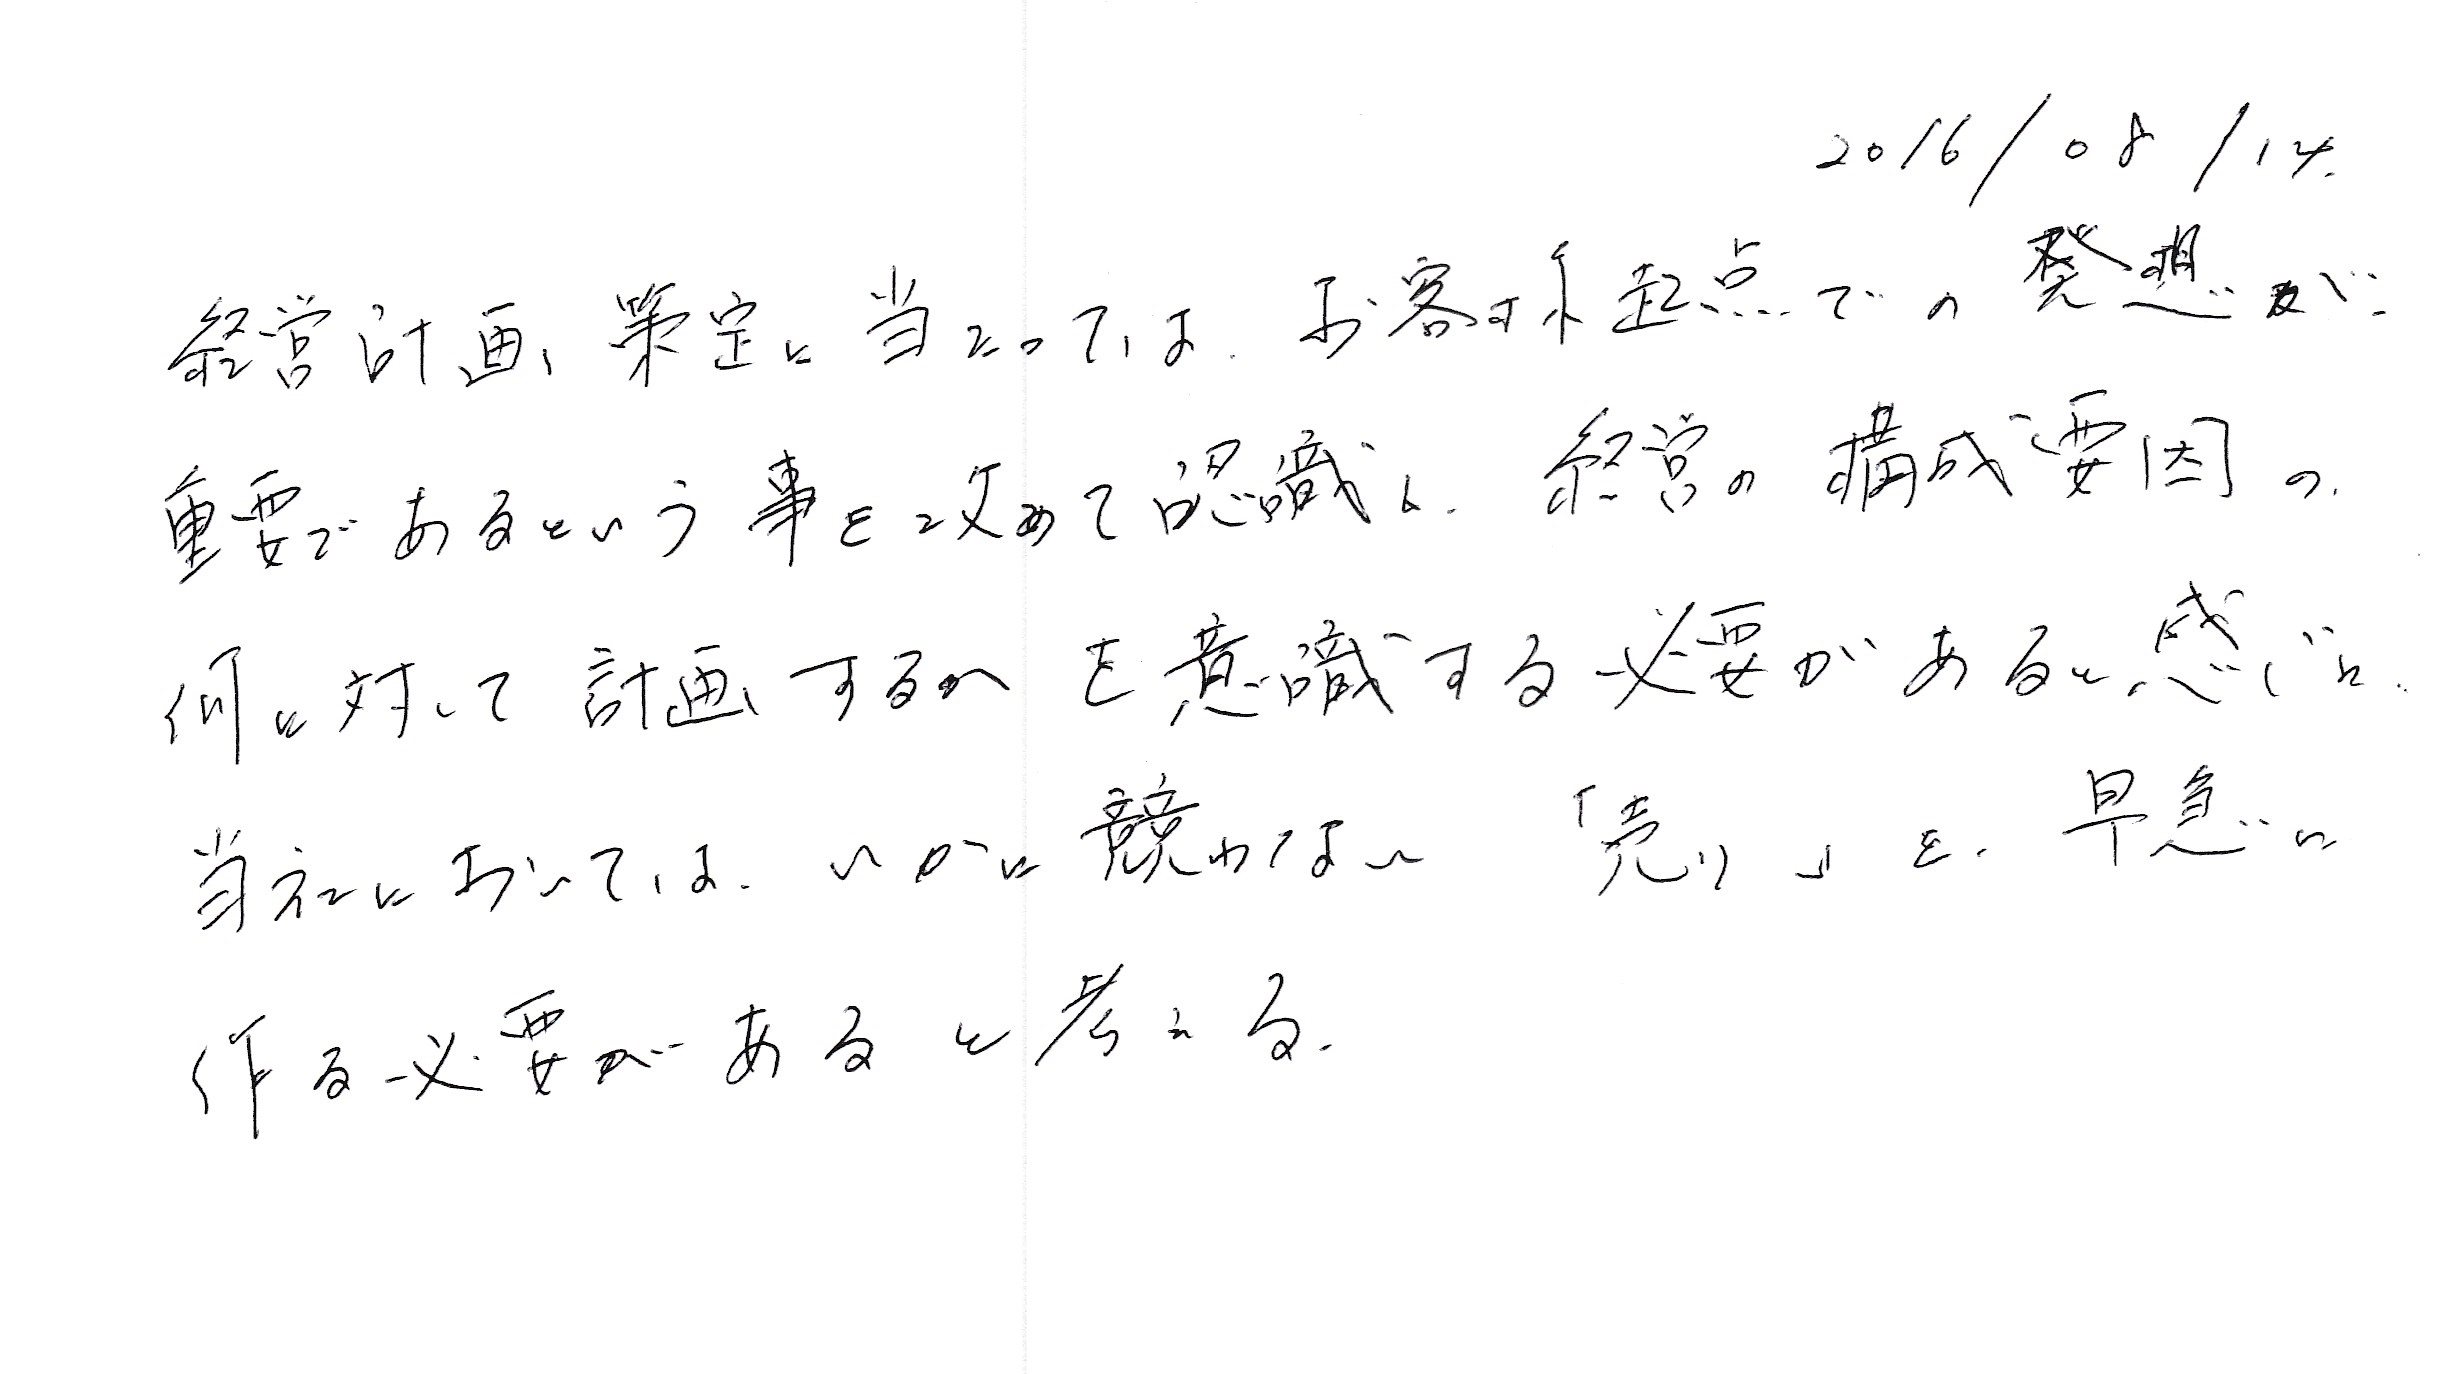 2016/08/14.
経営計画策定に当たっては、お客様起点での発想が、
重要であるという事を改めて認識し、経営の構成要因の、
何に対して計画するかを意識する必要があると感じた。
当社においては、いかに競わない「売り」を、早急に
作る必要があると考える。